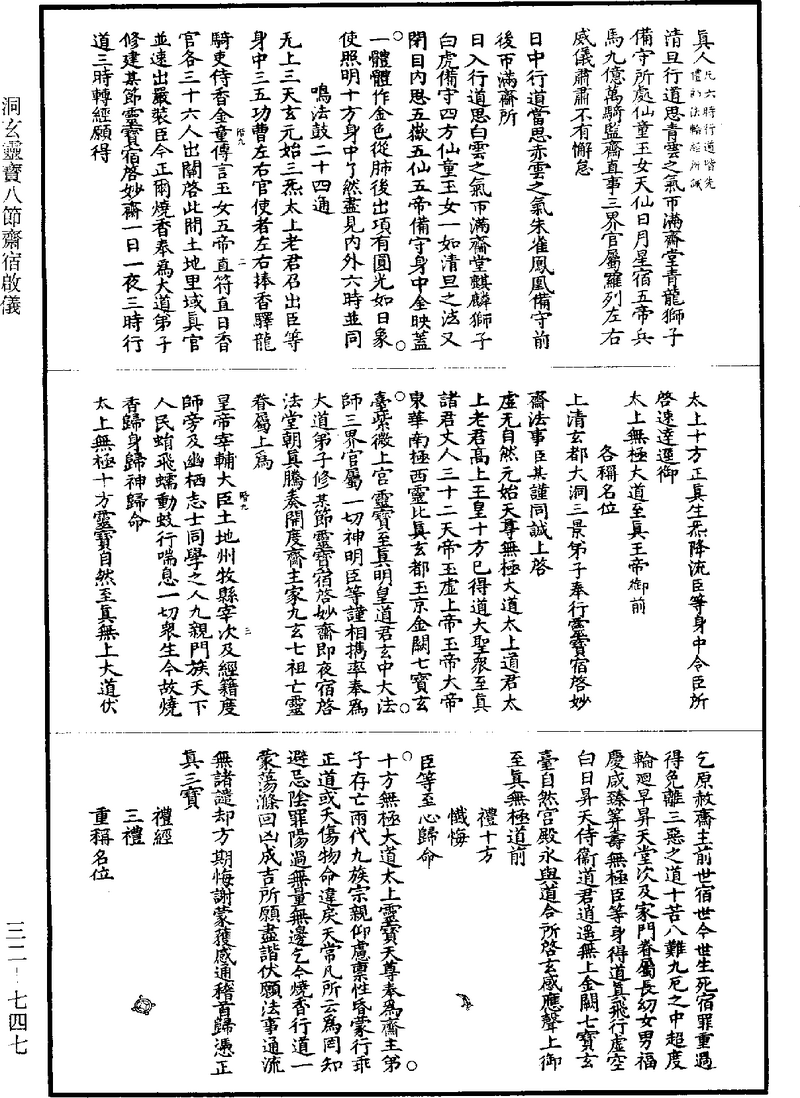 洞玄靈寶八節齋宿啟儀
三二—七四七
真人凡六時行道皆先禮初法輪經所誡
清旦行道思青雲之氣帀滿齋堂青龍獅子
備守所處仙童玉女天仙日月星宿五帝兵
馬九億萬騎監齋直事三界官屬羅列左右
威儀肅肅不有懈怠
日中行道當思赤雲之氣朱雀鳳凰備守前
後帀滿齋所
日入行道思白雲之氣帀滿齋堂麒麟獅子
白虎備守四方仙童玉女一如清旦之法又
閉目內思五嶽五仙五帝備守身中金映蓋
一體體作金色從肺後出項有圓光如日象
使照明十方身中了然盡見內外六時並同
鳴法鼓二十四通
无上三天玄元始三炁太上老君召出臣等
身中三五功曹左右官使者左右捧香驛龍
騎吏侍香金童傳言玉女五帝直符直日香
官各三十六人出關啓此間土地里域真官
並速出嚴裝臣今正爾燒香奉為大道弟子
修建某節靈寶宿啓妙齋一日一夜三時行
道三時轉經願得
太上十方正真生炁降流臣等身中令臣所
啓速達逕御
太上無極大道至真玉帝御前
各稱名位
上清玄都大洞三景弟子奉行靈寶宿啓妙
齋法事臣某謹同誠上啓
虛无自然元始天尊無極大道太上道君太
上老君高上玉皇十方已得道大聖衆至真
諸君丈人三十二天帝玉虛上帝玉帝大帝
東華南極西靈北真玄都玉京金闕七寶玄
臺紫微上宮靈寶至真明皇道君玄中大法
師三界官屬一切神明臣等謹相攜率奉為
大道弟子修某節靈寶宿啓妙齋即夜宿啓
法堂朝真騰奏開度齋主家九玄七祖亡靈
眷屬上為
皇帝宰輔大臣土地州牧縣宰次及經籍度
師旁及幽栖志士同學之人九親門族天下
人民蛸飛蠕動蚑行喘息一切衆生今故燒
香歸身歸神歸命
太上無極十方靈寶自然至真無上大道伏
乞原赦齋主前世宿世今世生死宿罪重過
得免離三惡之道十苦八難九厄之中超度
輪迴早昇天堂次及家門眷屬長幼女男福
慶咸臻筭壽無極臣等身得道真飛行虛空
白日昇天侍衛道君逍遥無上金闕七寶玄
臺自然宮殿永與道合所啓玄感應聲上御
至真無極道前
禮十方
懺悔
臣等至心歸命
十方無極大道太上靈寶天尊奉為齋主弟
子存亡兩代九族宗親仰慮稟性昏蒙行乖
正道或夭傷物命違戾天常凡所云為罔知
避忌陰罪陽過無量無邊乞今燒香行道一
蒙蕩滌回凶成吉所願盡諧伏願法事通流
無諸譴却方期悔謝蒙獲感通稽首歸憑正
真三寶
禮經
三禮
重稱名位